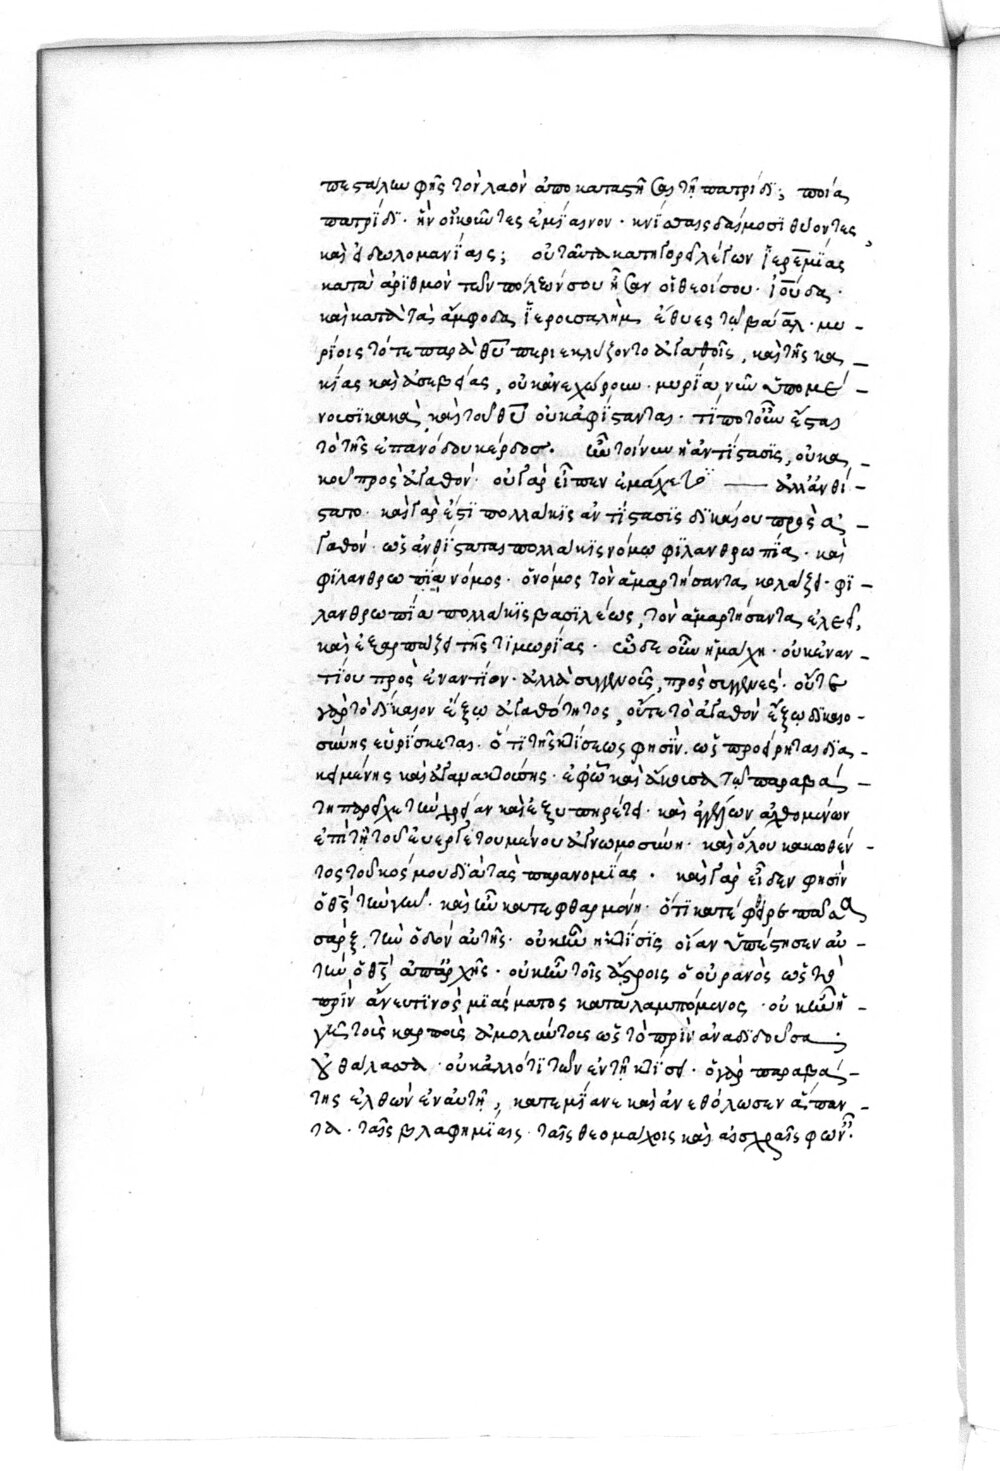 πεςαλωφῆς τὸν λαὸν ἀποκαταςῆσαι τῆ πατρίδι; ποία
πατρϊδι· ἣν οἰκοῦντες ἐμΐαινον· κνίσαις δαίμοσι θύοντες
καὶ εἰδωλομανΐαις; οὐ ταῦτα κατηγορεῖ λέγων Ἱερεμΐας
κατὰ ἀριθμὸν τῶν πόλεών σου ἦσαν οἱ θεοί σου· Ἰούδα·
καὶ κατὰ τὰς ἄμφοδα Ἱερουσαλὴμ ἔθυες τῷ βάαλ· μυ-
ρίοις τότε παρὰ θῦ περιεκλύζοντο ἀγαθοῖς, καὶ τῆς κα-
κίας καὶ ἀσεβείας, οὐκ ἀνεχώρουν· μυρία νῦν ὑπομέ-
νουσι κακὰ καὶ τοῦ θῦ οὐκ ἀφίςανται· τί ποτ' οὖν ἔςαι
τὸ τῆς ἐπανόδου κέρδος· ὢν τοίνυν ἡ ἀντίςασις, οὐ κα-
κοῦ πρὸς ἀγαθόν· οὐ γὰρ εἶπεν ἐμάχετο — ἀλλ' ἀνθί-
ςατο· καὶ γὰρ ἐςὶ πολλάκις ἀντίςασις δικαίου πρὸς ἀ-
γαθόν· ὡς ἀνθίςαται πολλάκις νόμῳ φιλανθρωπία· καὶ
φιλανθρωπία νόμος· ὁ νόμος τὸν ἁμαρτήσαντα κολάζει· φι-
λανθρωπία πολλάκις βασιλέως, τὸν ἁμαρτήσαντα ἐλεεῖ,
καὶ ἐξαρπάζει τῆς τιμωρίας· ὧδε οὖν ἡ μάχη· οὐκ ἐναν-
τίου πρὸς ἐναντίον· ἀλλὰ συγγενοῦς, πρὸς συγγενές· οὔτε
γὰρ τὸ δίκαιον ἔξω ἀγαθότητος, οὔτε τὸ ἀγαθὸν ἔξω δικαιο-
σύνης εὑρίσκεται· ὅτι τῆς κτίσεως φησὶν. ὡς προείρηται δια-
κειμένης καὶ ἀγανακτούσης· ἐφ' ὧν καὶ ἄκουσα τῷ παραβά-
τῃ παρεῖχε τὴν χρείαν καὶ ἐξυπηρετεῖ· καὶ ἀγγέλων ἀχθομένων
ἐπὶ τῆ τοῦ εὐεργετουμένου ἀγνωμοσύνη· καὶ ὅλου κακωθέν-
τος τοῦ κόσμου διὰ τὰς παρανομΐας. καὶ γὰρ εἶδεν φησὶν
ὁ θς τὴν γῆν· καὶ ἦν κατεφθαρμένη· ὅτι κατέφθειρε πᾶσα
σάρξ, τὴν ὁδὸν αὐτῆς· οὐκ ἦν ἡ κτίσις οἵαν ὑπέςησεν αὐ-
τὴν ὁ θς ἀπαρχῆς· οὐκ ἦν τοῖς ἄςροις ὁ οὐρανὸς ὡς τὸ
πρὶν ἄνευ τινὸς μιάσματος καταλαμπόμενος· οὐκ ἦν ἡ
γῆ τοὺς καρποὺς ἀμολύντους ὡς τὸ πρὶν ἀναδιδοῦσα·
οὐ θάλασσα· οὐκ ἄλλό τι τῶν ἐν τῆ κτίσει· ὁ γὰρ παραβά-
της ἐλθὼν ἐν αὐτῆ, κατεμΐανε καὶ ἀνεθόλωσεν ἅπαν-
τα· ταῖς βλασφημΐαις· ταῖς θεομάχοις καὶ αἰσχραῖς φων.